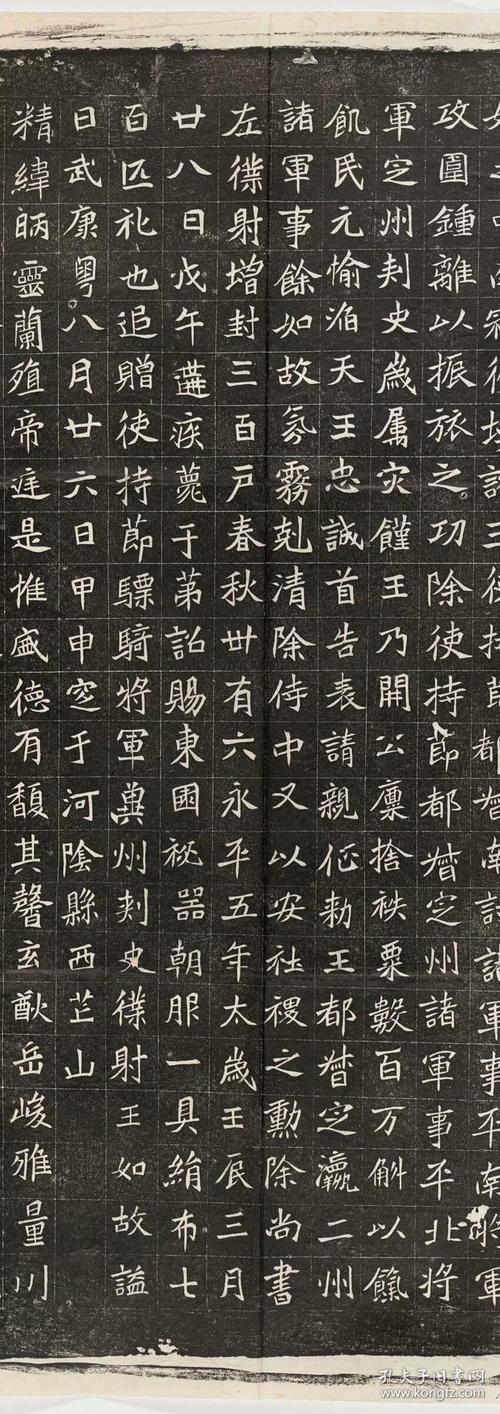 詔王使持節都督南討諸軍事平南將軍
攻圍鍾離以振旅之功除使持節都督定州諸軍事平北將
軍定州刾史歲屬灾饉王乃開公廩捨秩粟數百万斛以餼
飢民元愉滔天王忠誠首告表請親征勑王都督定瀛二州
諸軍事餘如故氛霧剋清除侍中又以安社稷之勳除尚書
左僕射增封三百戶春秋卅有六永平五年太歲壬辰三月
廿八日戊午遘疾薨于第詔賜東園秘器朝服一具絹布七
百匹礼也追贈使持節驃騎將軍冀州刾史僕射王如故謚
曰武康粵八月廿六日甲申窆于河陰縣西芒山
精緯昞靈蘭殖帝庭是惟盛德有馥其馨玄猷岳峻雅量川
孔夫子旧書网
www.kongfz.com